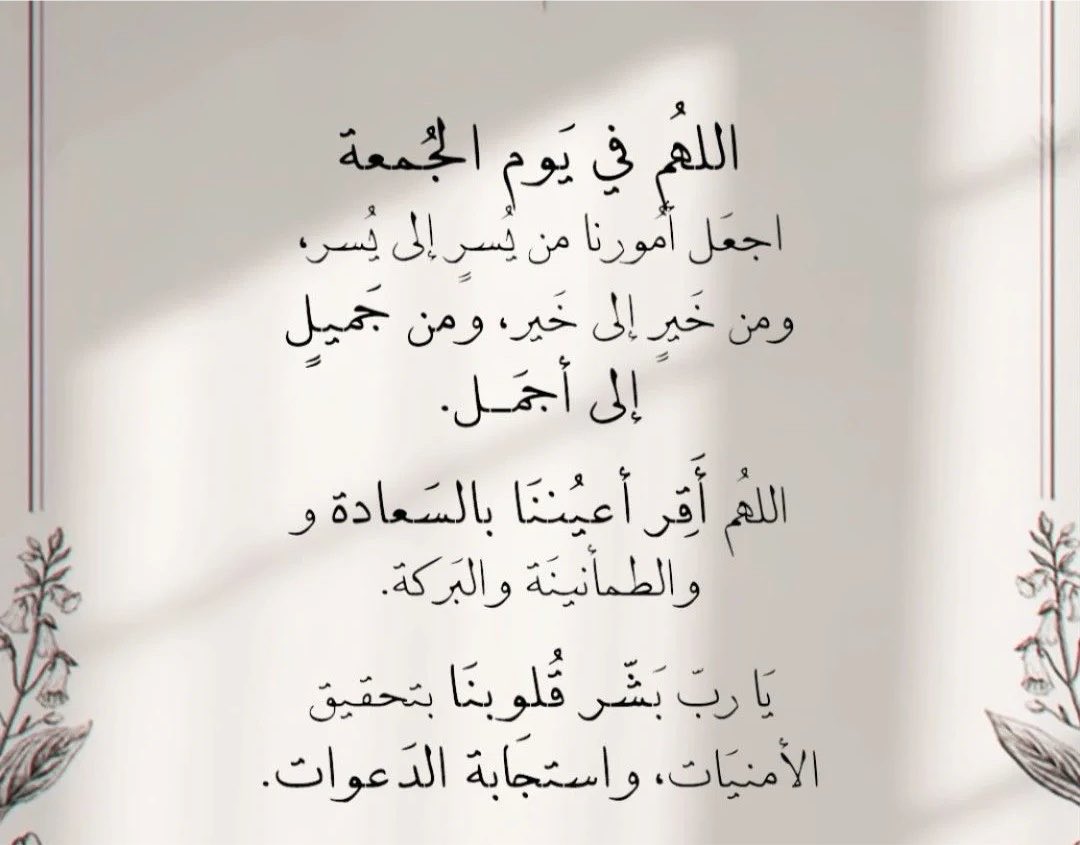 اللهُم في يَوم الجُمعة
اجعَل أمُورنا من يُسرٍ إلى يُسر،
ومن خَيرٍ إلى خَير، ومن جَميلٍ
إلى أجمَـل.
اللهُم أَقِر أعيُننَا بالسَعادة و
والطمأنينَة والبَركة.
يَا ربّ بَشّر قُلوبنَا بتحقيق
الأمنيَات، واستجَابة الدَعوات.